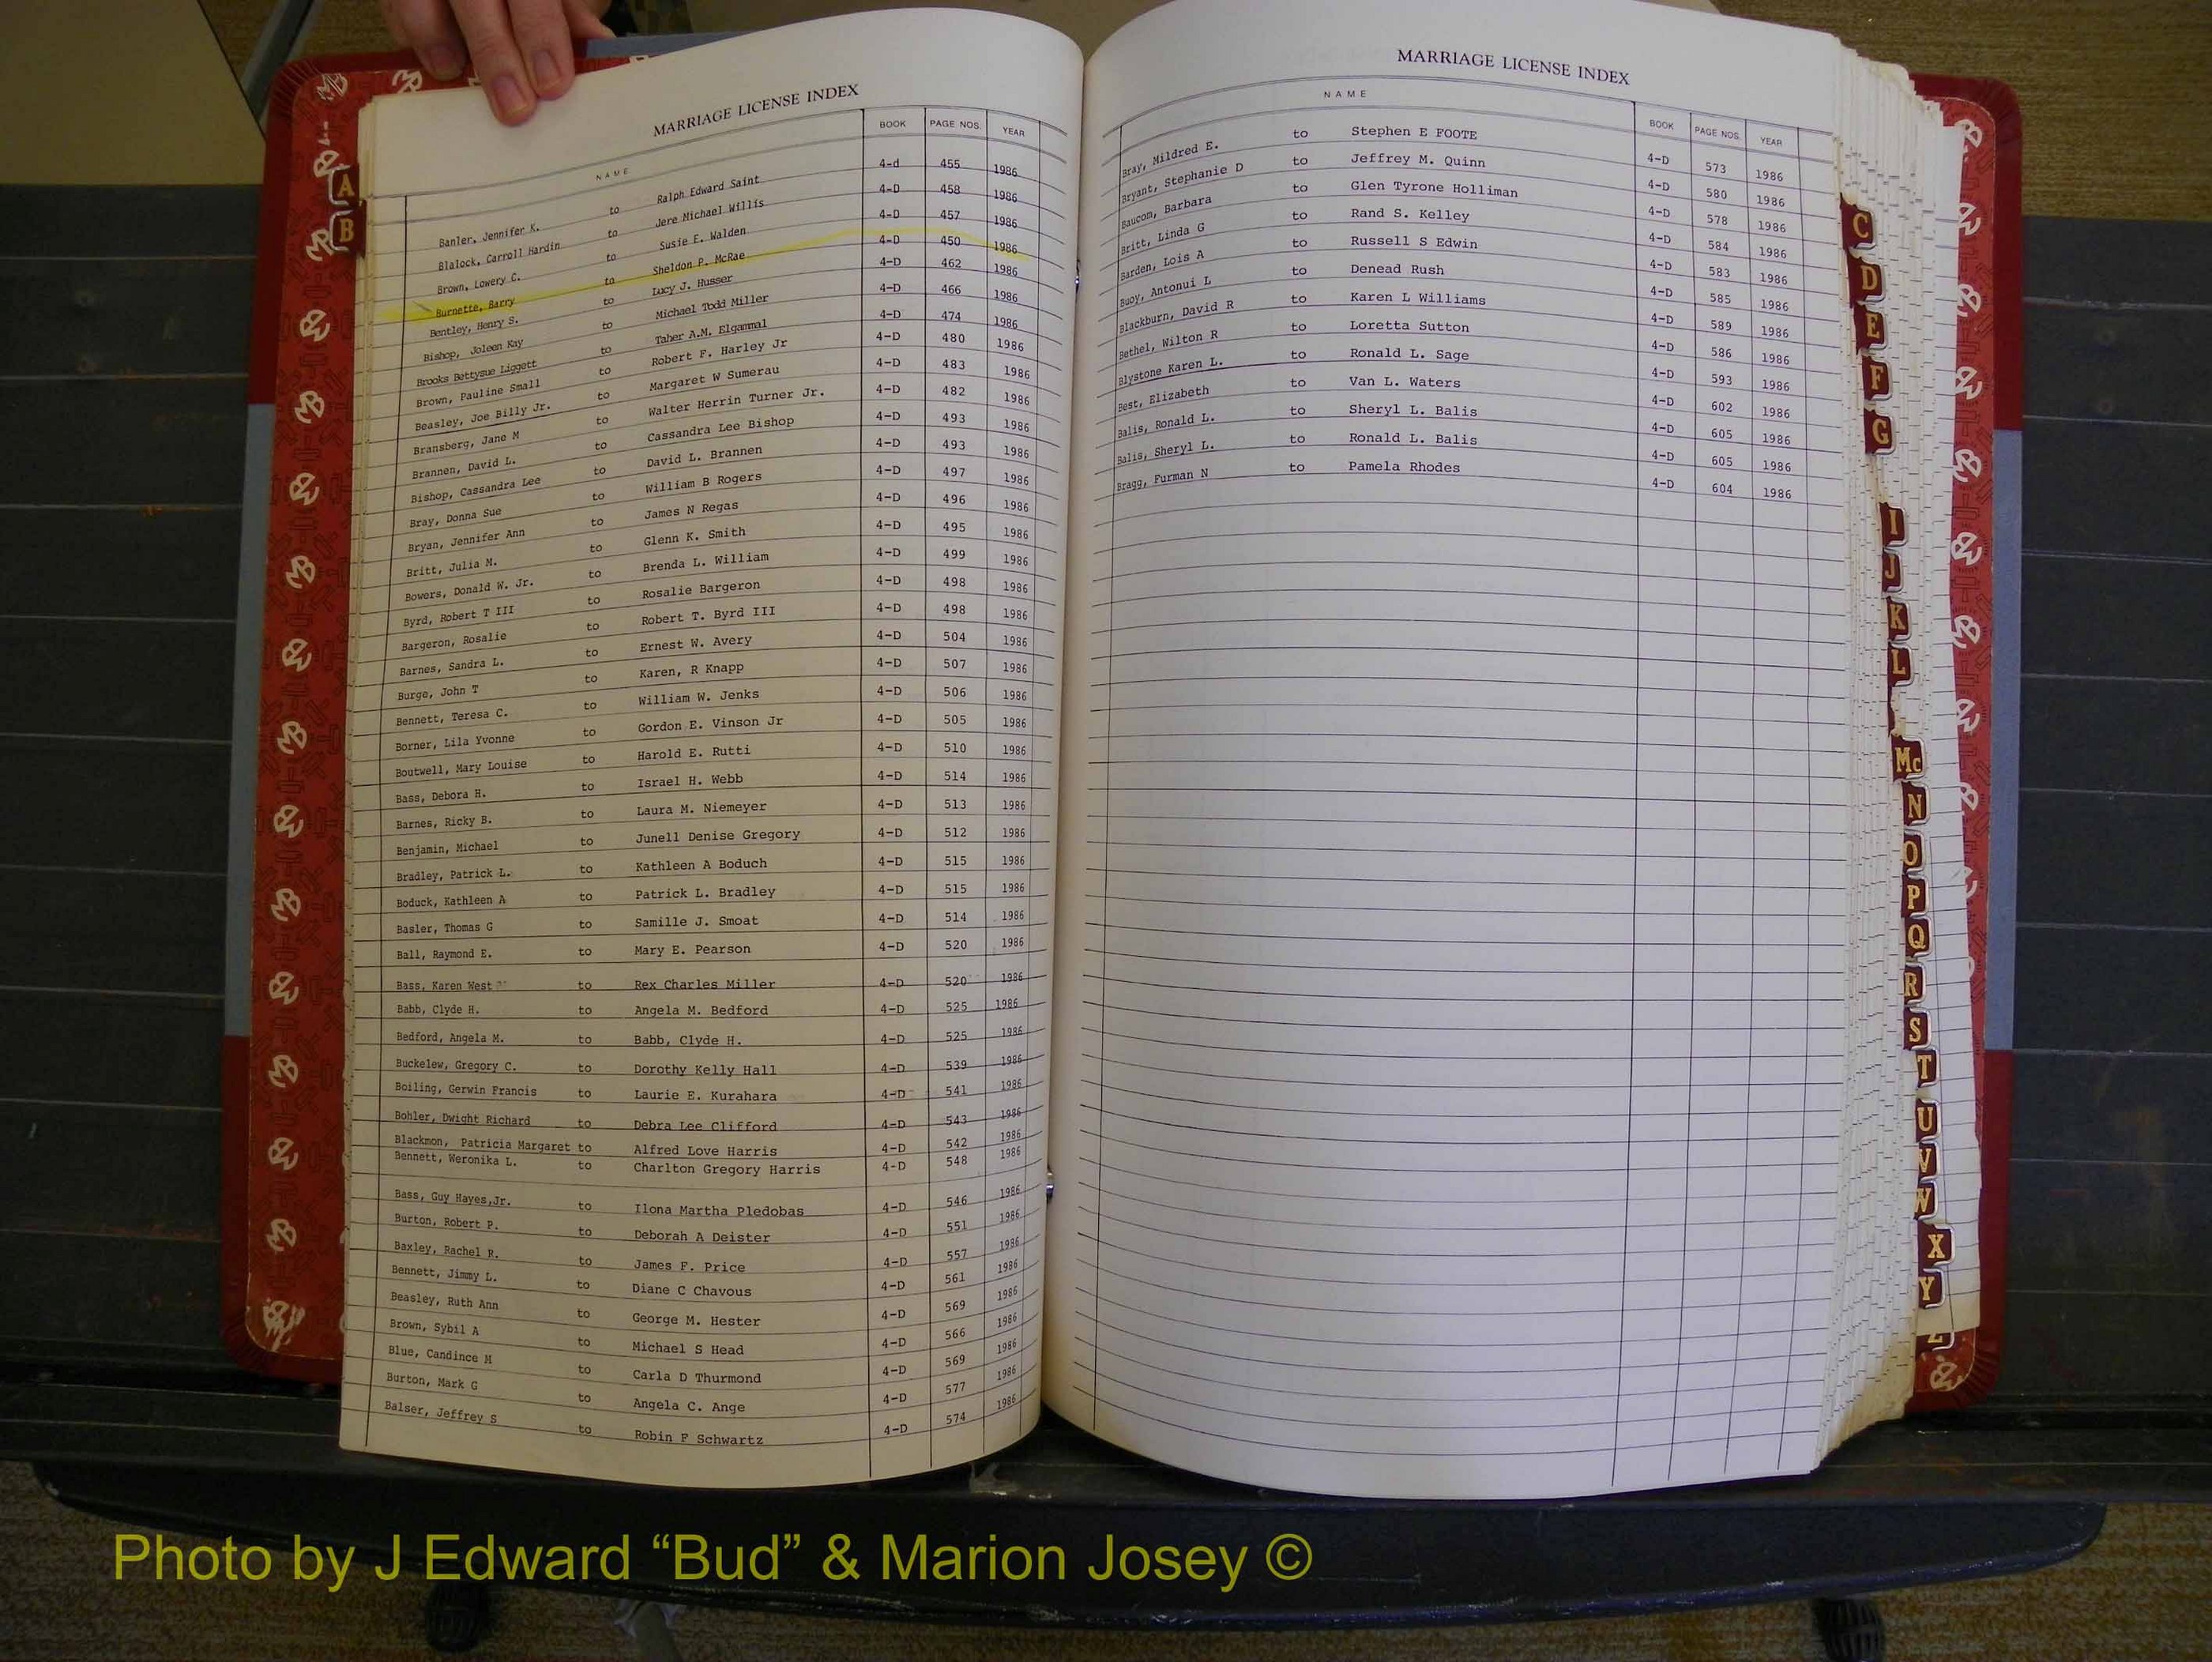 MARRIAGE LICENSE INDEX
NAME BOOK PAGE NOS. YEAR
Banler, Jennifer K. to Ralph Edward Saint 4-d 455 1986
Blalock, Carroll Hardin to Jere Michael Willis 4-D 458 1986
Brown, Lowery C. to Susie E. Walden 4-D 457 1986
Burnette, Barry to Sheldon P. McRae 4-D 450 1986
Bentley, Henry S. to Lucy J. Husser 4-D 462 1986
Bishop, Joleen Kay to Michael Todd Miller 4-D 466 1986
Brooks Bettysue Liggett to Taher A.M. Elgammal 4-D 474 1986
Brown, Pauline Small to Robert F. Harley Jr 4-D 480 1986
Beasley, Joe Billy Jr. to Margaret W Sumerau 4-D 483 1986
Bransberg, Jane M to Walter Herrin Turner Jr. 4-D 482 1986
Brannen, David L. to Cassandra Lee Bishop 4-D 493 1986
Bishop, Cassandra Lee to David L. Brannen 4-D 493 1986
Bray, Donna Sue to William B Rogers 4-D 497 1986
Bryan, Jennifer Ann to James N Regas 4-D 496 1986
Britt, Julia M. to Glenn K. Smith 4-D 495 1986
Bowers, Donald W. Jr. to Brenda L. William 4-D 499 1986
Byrd, Robert T III to Rosalie Bargeron 4-D 498 1986
Bargeron, Rosalie to Robert T. Byrd III 4-D 498 1986
Barnes, Sandra L. to Ernest W. Avery 4-D 504 1986
Burge, John T to Karen, R Knapp 4-D 507 1986
Bennett, Teresa C. to William W. Jenks 4-D 506 1986
Borner, Lila Yvonne to Gordon E. Vinson Jr 4-D 505 1986
Boutwell, Mary Louise to Harold E. Rutti 4-D 510 1986
Bass, Debora H. to Israel H. Webb 4-D 514 1986
Barnes, Ricky B. to Laura M. Niemeyer 4-D 513 1986
Benjamin, Michael to Junell Denise Gregory 4-D 512 1986
Bradley, Patrick L. to Kathleen A Boduch 4-D 515 1986
Boduck, Kathleen A to Patrick L. Bradley 4-D 515 1986
Basler, Thomas G to Samille J. Smoat 4-D 514 1986
Ball, Raymond E. to Mary E. Pearson 4-D 520 1986
Bass, Karen West to Rex Charles Miller 4-D 520 1986
Babb, Clyde H. to Angela M. Bedford 4-D 525 1986
Bedford, Angela M. to Babb, Clyde H. 4-D 525 1986
Buckelew, Gregory C. to Dorothy Kelly Hall 4-D 539 1986
Boiling, Gerwin Francis to Laurie E. Kurahara 4-D 541 1986
Bohler, Dwight Richard to Debra Lee Clifford 4-D 543 1986
Blackmon, Patricia Margaret to Alfred Love Harris 4-D 542 1986
Bennett, Weronika L. to Charlton Gregory Harris 4-D 548 1986
Bass, Guy Hayes,Jr. to Ilona Martha Pledobas 4-D 546 1986
Burton, Robert P. to Deborah A Deister 4-D 551 1986
Baxley, Rachel R. to James F. Price 4-D 557 1986
Bennett, Jimmy L. to Diane C Chavous 4-D 561 1986
Beasley, Ruth Ann to George M. Hester 4-D 569 1986
Brown, Sybil A to Michael S Head 4-D 566 1986
Blue, Candince M to Carla D Thurmond 4-D 569 1986
Burton, Mark G to Angela C. Ange 4-D 577 1986
Balser, Jeffrey S to Robin F Schwartz 4-D 574 1986
MARRIAGE LICENSE INDEX
NAME BOOK PAGE NOS. YEAR
Bray, Mildred E. to Stephen E FOOTE 4-D 573 1986
Bryant, Stephanie D to Jeffrey M. Quinn 4-D 580 1986
Baucom, Barbara to Glen Tyrone Holliman 4-D 578 1986
Britt, Linda G to Rand S. Kelley 4-D 584 1986
Barden, Lois A to Russell S Edwin 4-D 583 1986
Buoy, Antonui L to Denead Rush 4-D 585 1986
Blackburn, David R to Karen L Williams 4-D 589 1986
Bethel, Wilton R to Loretta Sutton 4-D 586 1986
Blystone Karen L. to Ronald L. Sage 4-D 593 1986
Best, Elizabeth to Van L. Waters 4-D 602 1986
Balis, Ronald L. to Sheryl L. Balis 4-D 605 1986
Balis, Sheryl L. to Ronald L. Balis 4-D 605 1986
Bragg, Furman N to Pamela Rhodes 4-D 604 1986
A
B
C
D
E
F
G
I
J
K
L
Mc
N
O
P
Q
R
S
T
U
V
W
X
Y
Z
Photo by J Edward “Bud” & Marion Josey ©